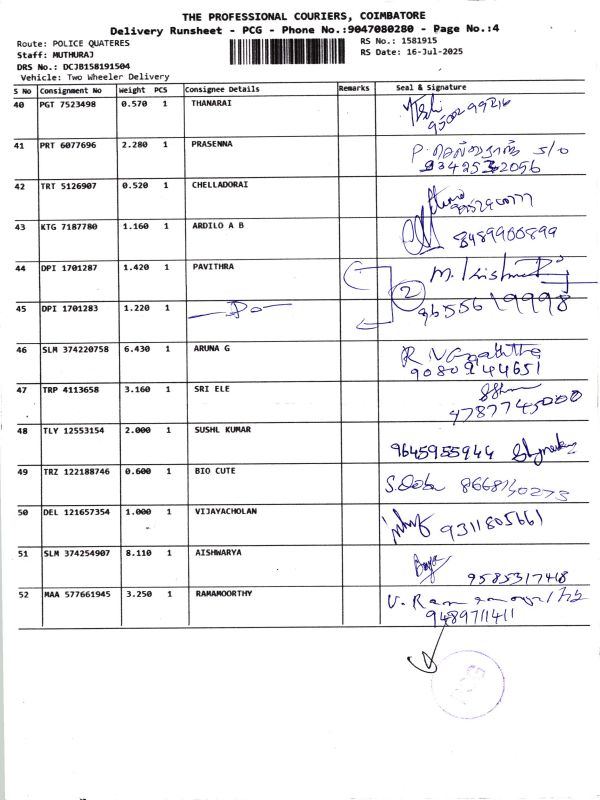 THE PROFESSIONAL COURIERS, COIMBATORE
Delivery Runsheet - PCG - Phone No.:9047080280 - Page No.:4
Route: POLICE QUATERES
RS No.: 1581915
Staff: MUTHURAJ
RS Date: 16-Jul-2025
DRS No.: DCJB158191504
Vehicle: Two Wheeler Delivery
S No Consignment No Weight PCS Consignee Details Remarks Seal & Signature
40 PGT 7523498 0.570 1 THANARAI
9500299216
41 PRT 6077696 2.280 1 PRASENNA
S/o
42 TRT 5126907 0.520 1 CHELLADORAI
43 KTG 7187780 1.160 1 ARDILO A B 8489900899
44 DPI 1701287 1.420 1 PAVITHRA M. Krishna
2
45 DPI 1701283 1.220 1 —Do— 9655619998
46 SLM 374220758 6.430 1 ARUNA G
9080944651
47 TRP 4113658 3.160 1 SRI ELE
48 TLY 12553154 2.000 1 SUSHL KUMAR 9645955944
49 TRZ 122188746 0.600 1 BIO CUTE
50 DEL 121657354 1.000 1 VIJAYACHOLAN 9311805661
51 SLM 374254907 8.110 1 AISHWARYA
9585317418
52 MAA 577661945 3.250 1 RAMAMOORTHY
9489711411